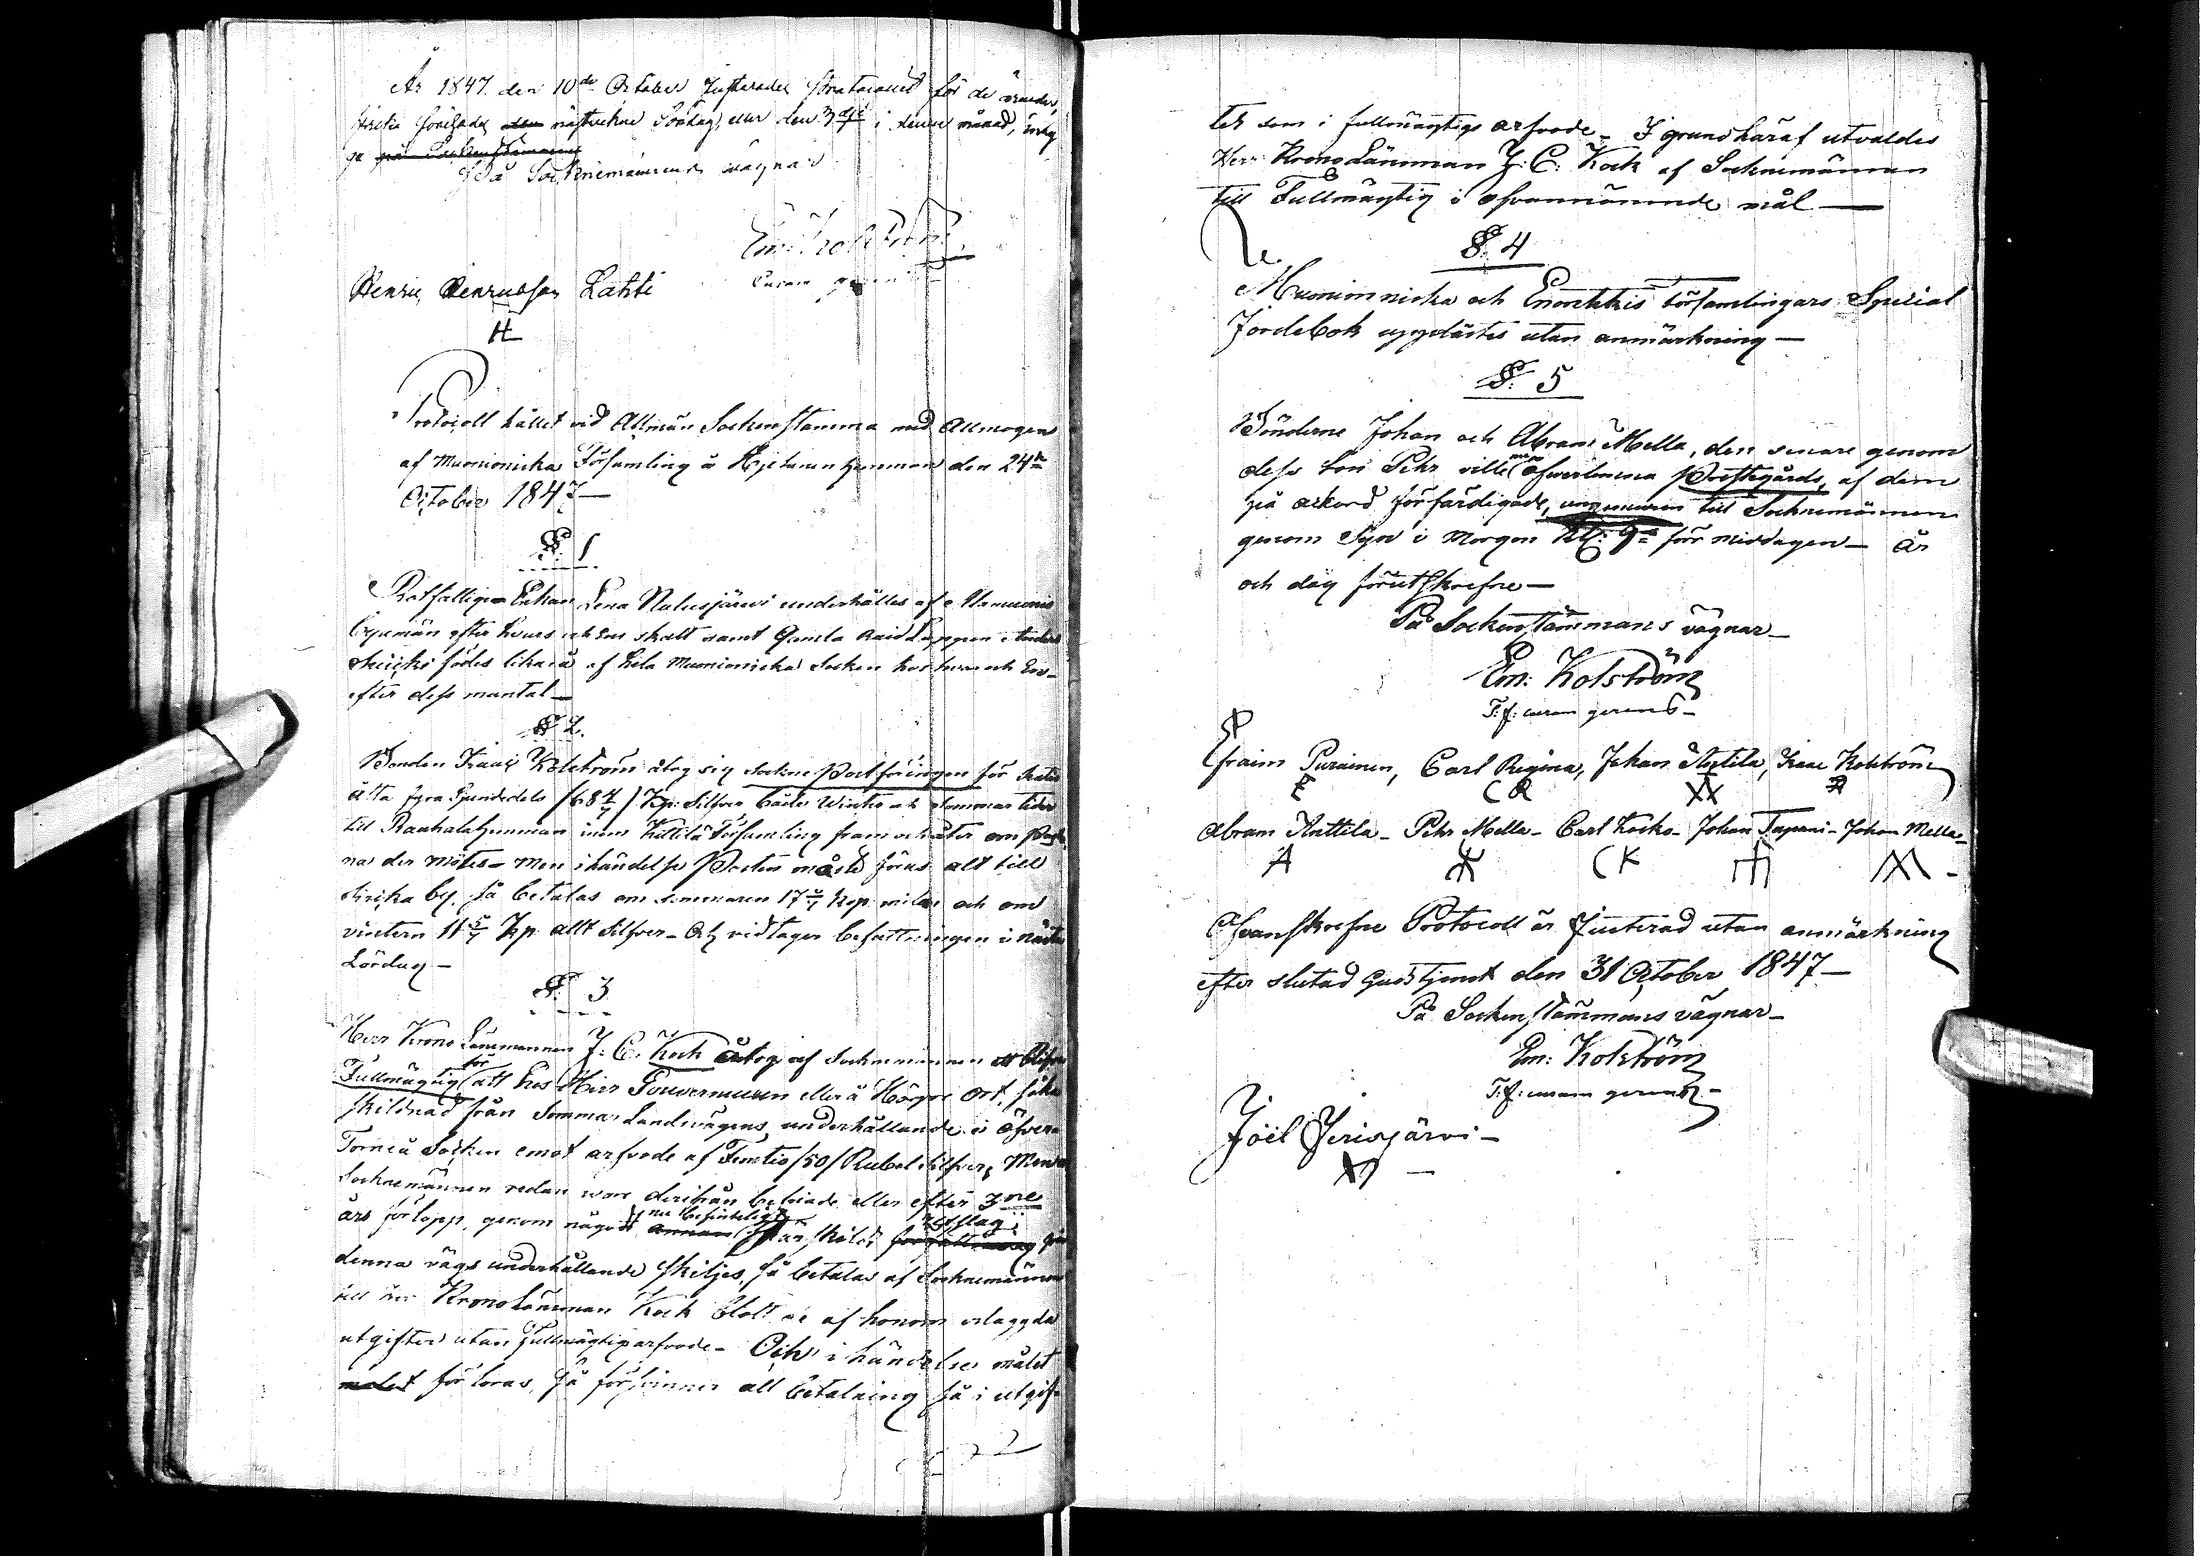 År 1847 den 10de October Justerades Protocollet för de ärender,
hvilka föregådes den nästvekne Söndag, eller den 3dje i denne månad,
På Socknemännens vägnar
Em: Kolström
Curam gerens
Henric Henricsson Lahti
H
Protocoll hållet vid Allmän Sockenstämma med Allmogen
af Muonionicka Församling å Hjetanen hemman den 24de
October 1847—
§. 1
Rotfattigen Enkan Lena Nalusjärvi underhålles af
byemän efter hvars och ens skatt samt Gamla Raid Lappen
födes likaså af hela Muonionicka Socken hos hvar och En
efter dess mantal—
§ 2.
Bonden Isaac Kolström åtog sig sockne Postföringen för
åtta fyra sjundedels /68 4/7/ Kop: Silfver både Winter och Sommar tider
till Rauhala hemman inom Kittilä Församling fram och åter om
na der mötes— Men i händelse Posten måste föras allt till
by, så betalas om sommaren 17 1/7 Kop milen och om
vintern 11 5/7 Kop allt Silfver— Och vidtager befattningen i nästa
Lördag—
§. 3
Herr Krono Länsmannen J: C: Kock åtog af Socknemännen att blifva
Fullmägtig för att hos Herr Gouverneuren eller å Högre Ort, söka
skillnad från Sommar Landsvägens underhållande i Öfver
Torneå Socken emot arfvode af Femtio /50/ Rubel Silfver, Men om
Socknemännen redan vore derifrån befriade eller efter 3ne
års förlopp, genom något nu befinteligt annan från skildt förslag
denna vägs underhållande skiljes, så betalas af Socknemännen
till Herr Krono Länsman Kock blott de af honom erlaggda
utgifter utan Fullmägtig arfvode— Och i händelse målet
målet förloras, så försvinner all betalning så i utgif-
ter som i fullmägtigs arfvode— I grund häraf utvaldes
Herr Krono Länsman J: C: Kock af Socknemännen
till Fullmägtig i ofvannämnde mål—
§. 4
Muonionicka och Enontekis församlingars Special
Jordebok upplästes utan anmärkning—
§. 5
Bönderne Johan och Abram Mella, den senare genom
dess Son Pehr ville nu öfverlemna Prestgårds, af dem
på ackord förfärdigade, ungsmuren till Socknemännen
genom Syn i Morgon Kl: 9 förr middagen— År
och dag förutskrefne—
På Sockenstämmans vägnar—
Em: Kolström
T: f: curam gerens—
Efraim Puranen, Carl Regina, Johan Anttila, Isaac Kolström
E CR
Abram Anttila— Pehr Mella— Carl Kocko— Johan Tapani— Johan Mella—
A CK
Ofvanskrefne Protocoll är Justerad utan anmärkning
efter slutad Gudstjenst den 31 October 1847—
På Sockenstämmans vägnar—
Em: Kolström
T: f: curam gerens—
Joël Jerisjärvi—